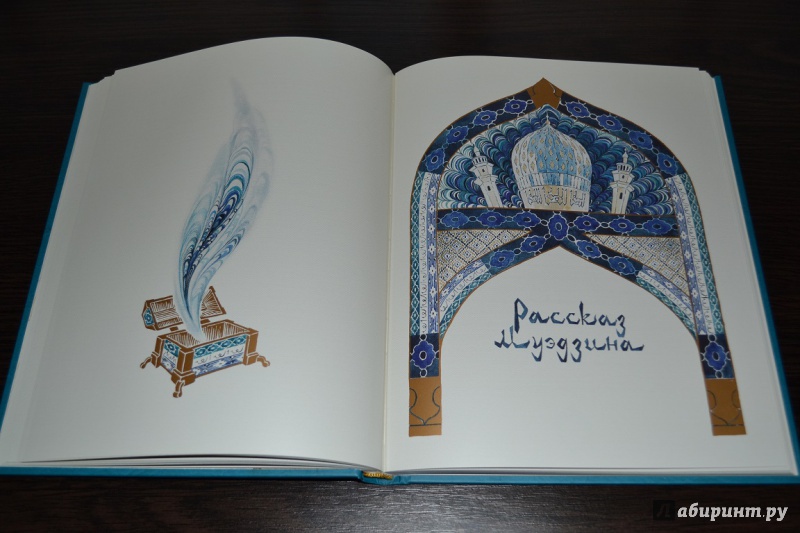 Рассказ
Муэдзина
Лабиринт.ру